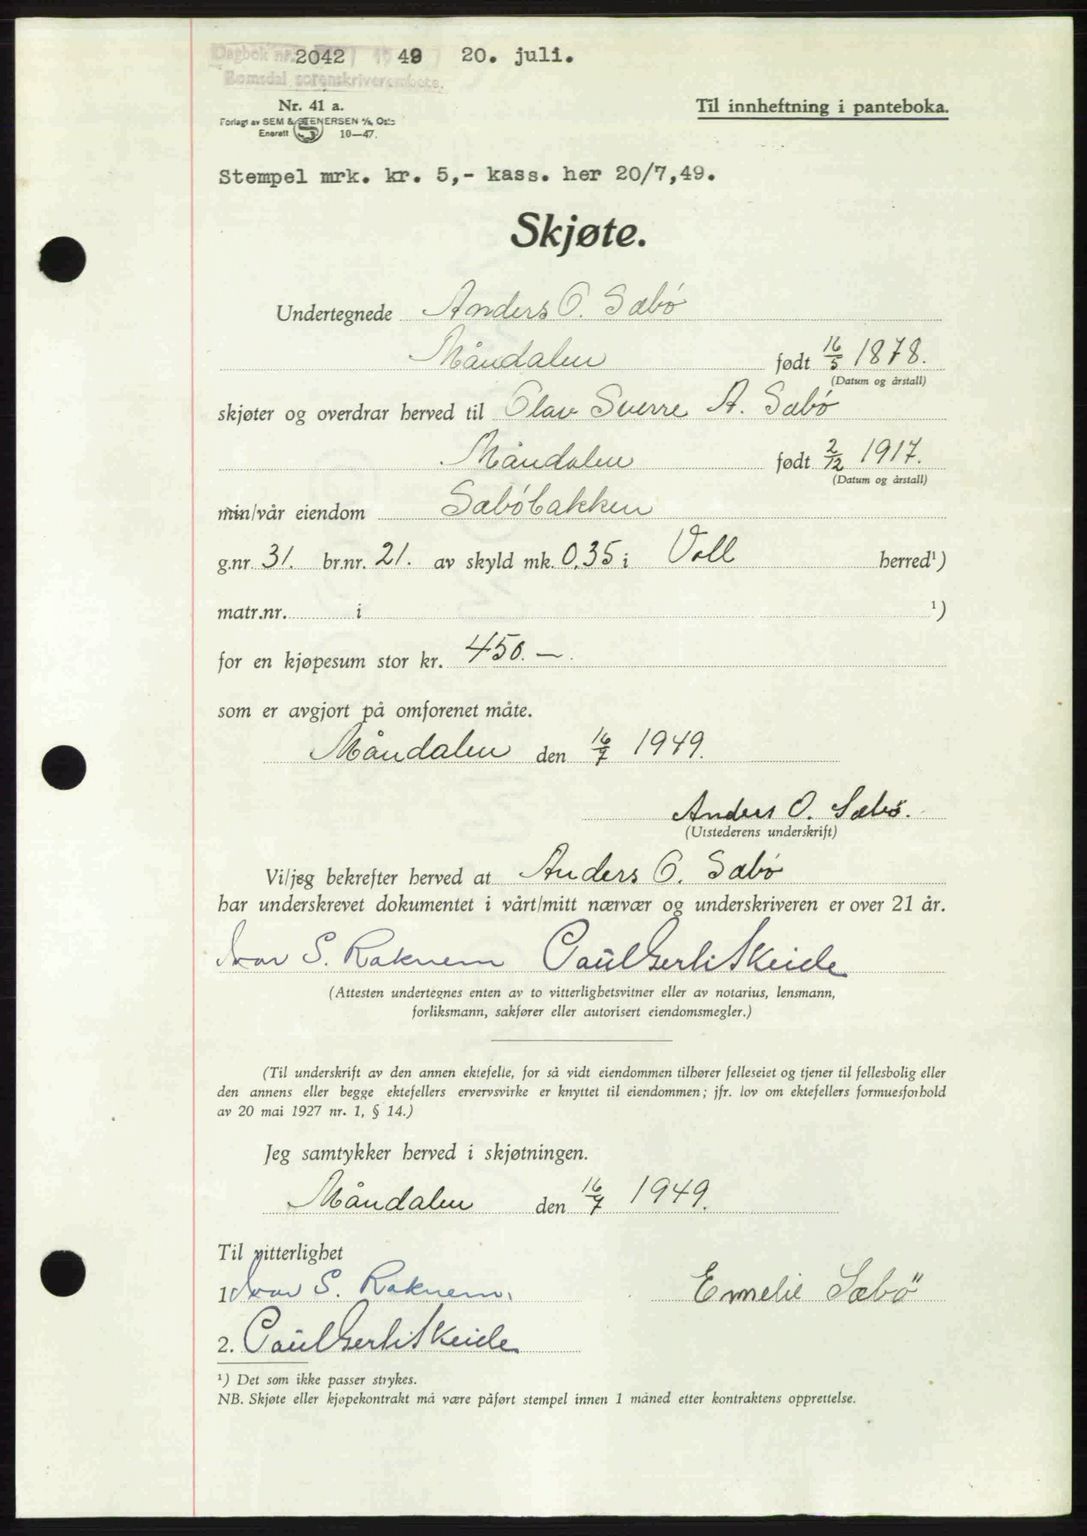 Dagbok nr. 2042 1949 20. juli.
Romsdal sorenskriverembete.
Nr. 41 a.
Til innheftning i panteboka.
Forlagt av SEM & STENERSEN A/S, Oslo
Enerett S 10—47.
Stempel mrk. kr. 5,- kass. her 20/7,49.
Skjøte.
Undertegnede Anders O. Sæbø
Måndalen født 16/5 1878.
(Datum og årstall)
skjøter og overdrar herved til Olav Sverre A. Sæbø
Måndalen født 2/12 1917.
(Datum og årstall)
min/vår eiendom Sæbøbakken
g.nr. 31. br.nr. 21. av skyld mk. 0,35 i Voll herred¹)
matr.nr. i ¹)
for en kjøpesum stor kr. 450.—.
som er avgjort på omforenet måte.
Måndalen den 16/7 1949.
Anders O. Sæbø.
(Utstederens underskrift)
Vi/jeg bekrefter herved at Anders O. Sæbø
har underskrevet dokumentet i vårt/mitt nærvær og underskriveren er over 21 år.
Ivar S. Raknem Paul Gerh. Skeide
(Attesten undertegnes enten av to vitterlighetsvitner eller av notarius, lensmann,
forliksmann, sakfører eller autorisert eiendomsmegler.)
(Til underskrift av den annen ektefelle, for så vidt eiendommen tilhører felleseiet og tjener til fellesbolig eller
den annens eller begge ektefellers ervervsvirke er knyttet til eiendommen; jfr. lov om ektefellers formuesforhold
av 20 mai 1927 nr. 1, § 14.)
Jeg samtykker herved i skjøtningen.
Måndalen den 16/7 1949.
Til vitterlighet
1 Ivar S. Raknem. Emelie Sæbø
2. Paul Gerh. Skeide
¹) Det som ikke passer strykes.
NB. Skjøte eller kjøpekontrakt må være påført stempel innen 1 måned etter kontraktens opprettelse.